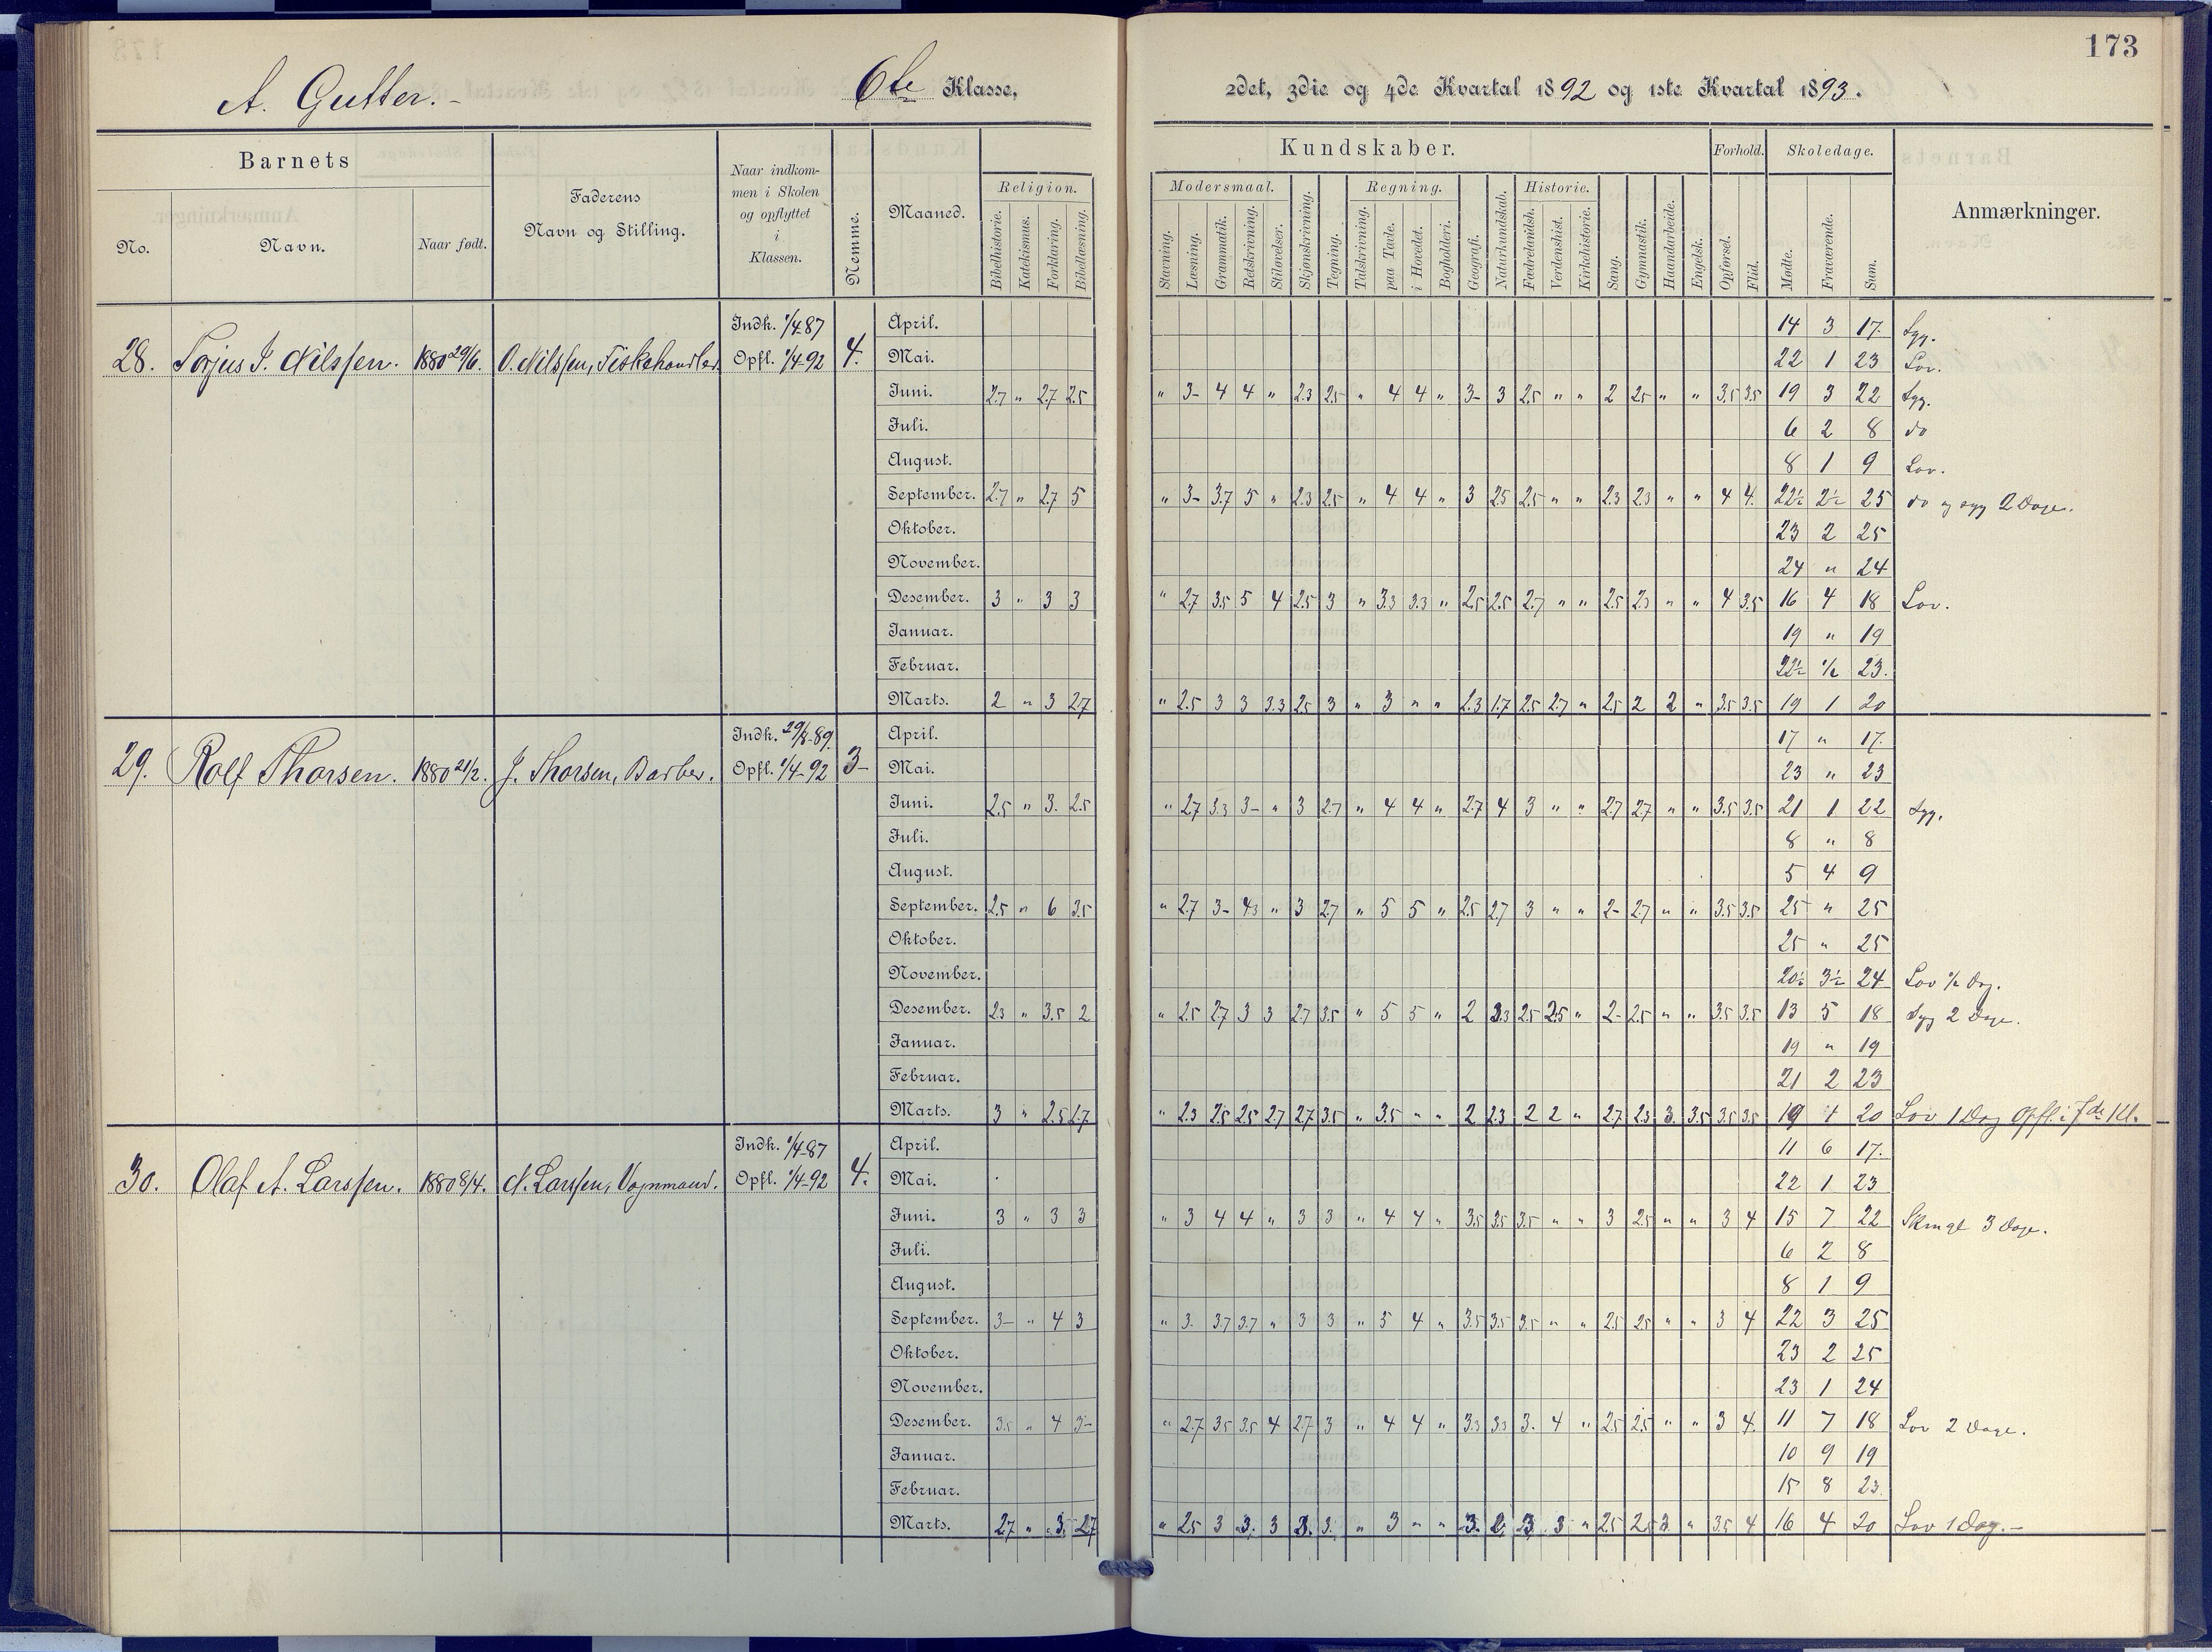 173
A. Gutter.- 6te Klasse, 2det, 3die og 4de Kvartal 1892 og 1ste Kvartal 1893.
Barnets
Faderens Navn og Stilling.
Naar indkommen i Skolen og opflyttet i Klassen.
Nemme.
Maaned.
Kundskaber.
Forhold.
Skoledage.
Anmærkninger.
No. Navn. Naar født.
Religion. Modersmaal. Regning. Historie.
Bibelhistorie. Katekismus. Forklaring. Bibellæsning. Stavning. Læsning. Grammatik. Retskrivning. Stiløvelser. Skjønskrivning. Tegning. Talskrivning. paa Tavle. i Hovedet. Bogholderi. Geografi. Naturkundskab. Fædrelandsh. Verdenshist. Kirkehistorie. Sang. Gymnastik. Haandarbeide. Engelsk. Opførsel. Flid. Mødte. Fraværende. Sum.
Indk. 1/4 87 April. 14 3 17. Syg.
28. Torjus J. Nilssen. 1880 29/6. O. Nilssen, Fiskehandler. Opfl. 1/4-92 4. Mai. 22 1 23 Lov.
Juni. 2.7 " 2.7 2.5 " 3- 4 4 " 2.3 2.5 " 4 4 " 3- 3 2.5 " " 2 2.5 " " 3.5 3.5 19 3 22 Syg.
Juli. 6 2 8 do
August. 8 1 9 Lov.
September. 2.7 " 2.7 5 " 3- 3.7 5 " 2.3 2.5 " 4 4 " 3 2.5 2.5 " " 2.3 2.3 " " 4 4. 22½ 2½ 25 do og syg 2 Dage.
Oktober. 23 2 25
November. 24 " 24
Desember. 3 " 3 3 " 2.7 3.5 5 4 2.5 3 " 3.3 3.3 " 2.5 2.5 2.7 " " 2.5 2.3 " " 4 3.5 16 4 18 Lov.
Januar. 19 " 19
Februar. 22½ ½ 23.
Marts. 2 " 3 2.7 " 2.5 3 3 3.3 2.5 3 " 3 " " 2.3 1.7 2.5 2.7 " 2.5 2 2 " 3.5 3.5 19 1 20
Indk. 29/8-89. April. 17 " 17.
29. Rolf Thorsen. 1880 21/2. J. Thorsen, Barber. Opfl. 1/4-92 3- Mai. 23 " 23
Juni. 2.5 " 3. 2.5 " 2.7 3.3 3- " 3 2.7 " 4 4 " 2.7 4 3 " " 2.7 2.7 " " 3.5 3.5 21 1 22 Syg.
Juli. 8 " 8
August. 5 4 9
September. 2.5 " 6 3.5 " 2.7 3- 4.3 " 3 2.7 " 5 5 " 2.5 2.7 3 " " 2- 2.7 " " 3.5 3.5 25 " 25
Oktober. 25 " 25
November. 20½ 3½ 24 Lov ½ Dag.
Desember. 2.3 " 3.5 2 " 2.5 2.7 3 3 2.7 3.5 " 5 5 " 2 3.3 2.5 2.5 " 2- 2.5 " " 3.5 3.5 13 5 18 Syg 2 Dage.
Januar. 19 " 19
Februar. 21 2 23
Marts. 3 " 2.5 2.7 " 2.3 2.5 2.5 2.7 2.7 3.5 " 3.5 " " 2 2.3 2 2 " 2.7 2.3 3. 3.5 3.5 3.5 19 1 20 Lov 1 Dag Opfl. i 7de Kl.
Indk. 1/4-87 April. 11 6 17.
30. Olaf A. Larssen. 1880 8/4. N. Larssen, Vognmand. Opfl. 1/4-92 4. Mai. 22 1 23
Juni. 3 " 3 3 " 3 4 4 " 3 3 " 4 4 " 3.5 3.5 3.5 " " 3 2.5 " " 3 4 15 7 22 3 Dage.
Juli. 6 2 8
August. 8 1 9
September. 3- " 4 3 " 3. 3.7 3.7 " 3 3 " 5 4 " 3.5 3.5 3.5 " " 2.5 2.5 " " 3 4 22 3 25
Oktober. 23 2 25
November. 23 1 24
Desember. 3.5 " 4 3- " 2.7 3.5 3.5 4 2.7 3 " 4 4 " 3.3 3.3 3. 4 " 2.5 2.5 " " 3 4. 11 7 18 Lov 2 Dage.
Januar. 10 9 19
Februar. 15 8 23.
Marts. 2.7 " 3.5 2.7 " 2.5 3 3. 3 3. 3. " 3 " " 3. 2. 3 3 " 2.5 2.5 3. " 3.5 4 16 4 20 Lov 1 Dag.-